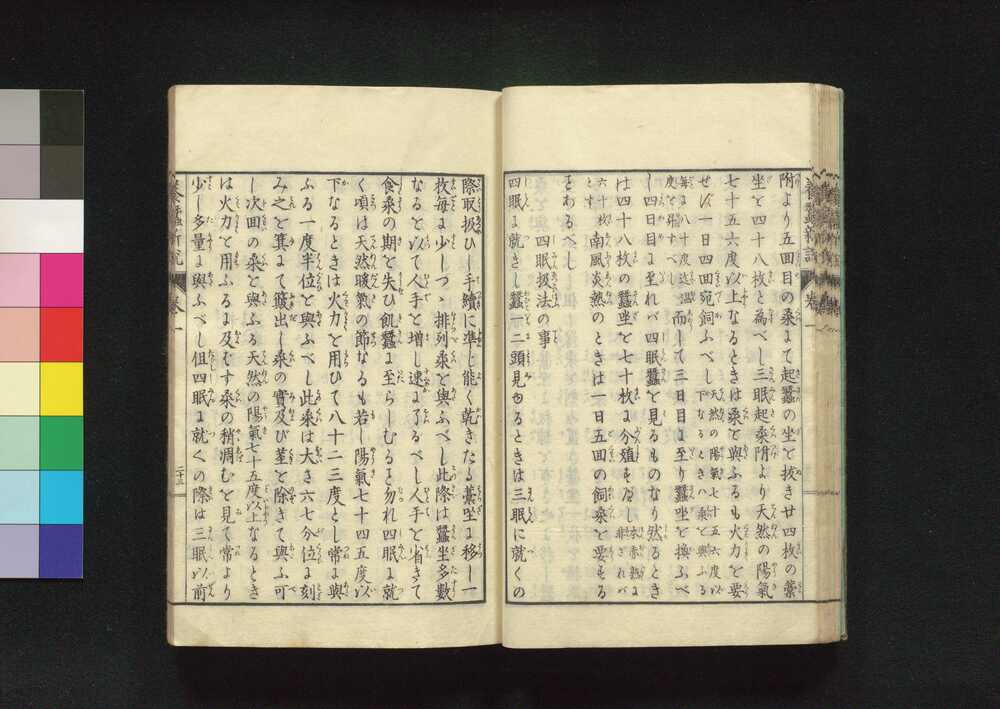 養蠶新説 卷一
附より五面目の桑まて起蠶の坐を抜き廿四枚の藁
坐を四十八枚と為べし三眠起桑附より天然の陽氣
七十五六度以上なるときは桑を與ふるも火力を要
せず一日四回宛飼ふべし 天然の陽氣七十五六度以下なるときハ桑を與ふる
而して三日目ま至り蠶坐を換ふべ
し四日目ま至れバ四眠蠶を見るものなり然るとき
は四十八枚の蠶坐を七十枚ま分殖をなし
六十枚とす 南風炎熱のときは一日五回の飼桑を要する
をあるべし
四眠扱法の事
四眠ま就きし蠶一二頭見ゆるときは三眠に就くの
際取扱ひし手續に準じ能く乾きたる藁坐ま移し一
枚毎ま少しづゝ排列桑を與ふべし此際は蠶坐多數
なるを以て人手を増し速ま了るべし人手を省きて
食桑の期を失ひ飢蠶ま至らしむるを勿れ四眠ま就
く頃は天然暖氣の節なるも若し陽氣七十四五度以
下なるときは火力を用ひて八十二三度とし常ま與
ふる一度半位を與ふべし此桑は大さ六七分位ま刻
み之を箕まて簸出し桑の實及び莖を除きて與ふ可
し次回の桑を與ふる天然の陽氣七十五度以上なるとき
は火力を用ふるま及ばず桑の稍凋むを見て常より
少し多量ま與ふべし但四眠ま就くの際は三眠以前
養蠶新説 卷一 二十三